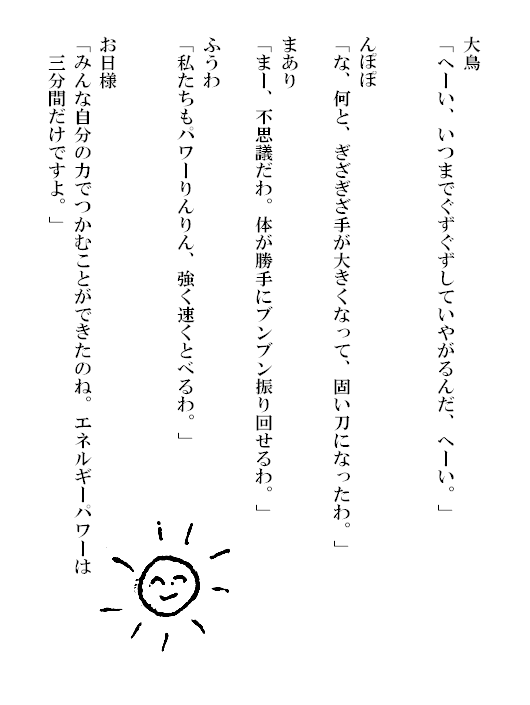 大鳥
「へーい、いつまでぐずぐずしていやがるんだ、へーい。」
んぽぽ
「な、何と、ぎざぎざ手が大きくなって、固い刀になったわ。」
まあり
「まー、不思議だわ。体が勝手にブンブン振り回せるわ。」
ふうわ
「私たちもパワーりんりん、強く速くとべるわ。」
お日様
「みんな自分の力でつかむことができたのね。エネルギーパワーは
三分間だけですよ。」